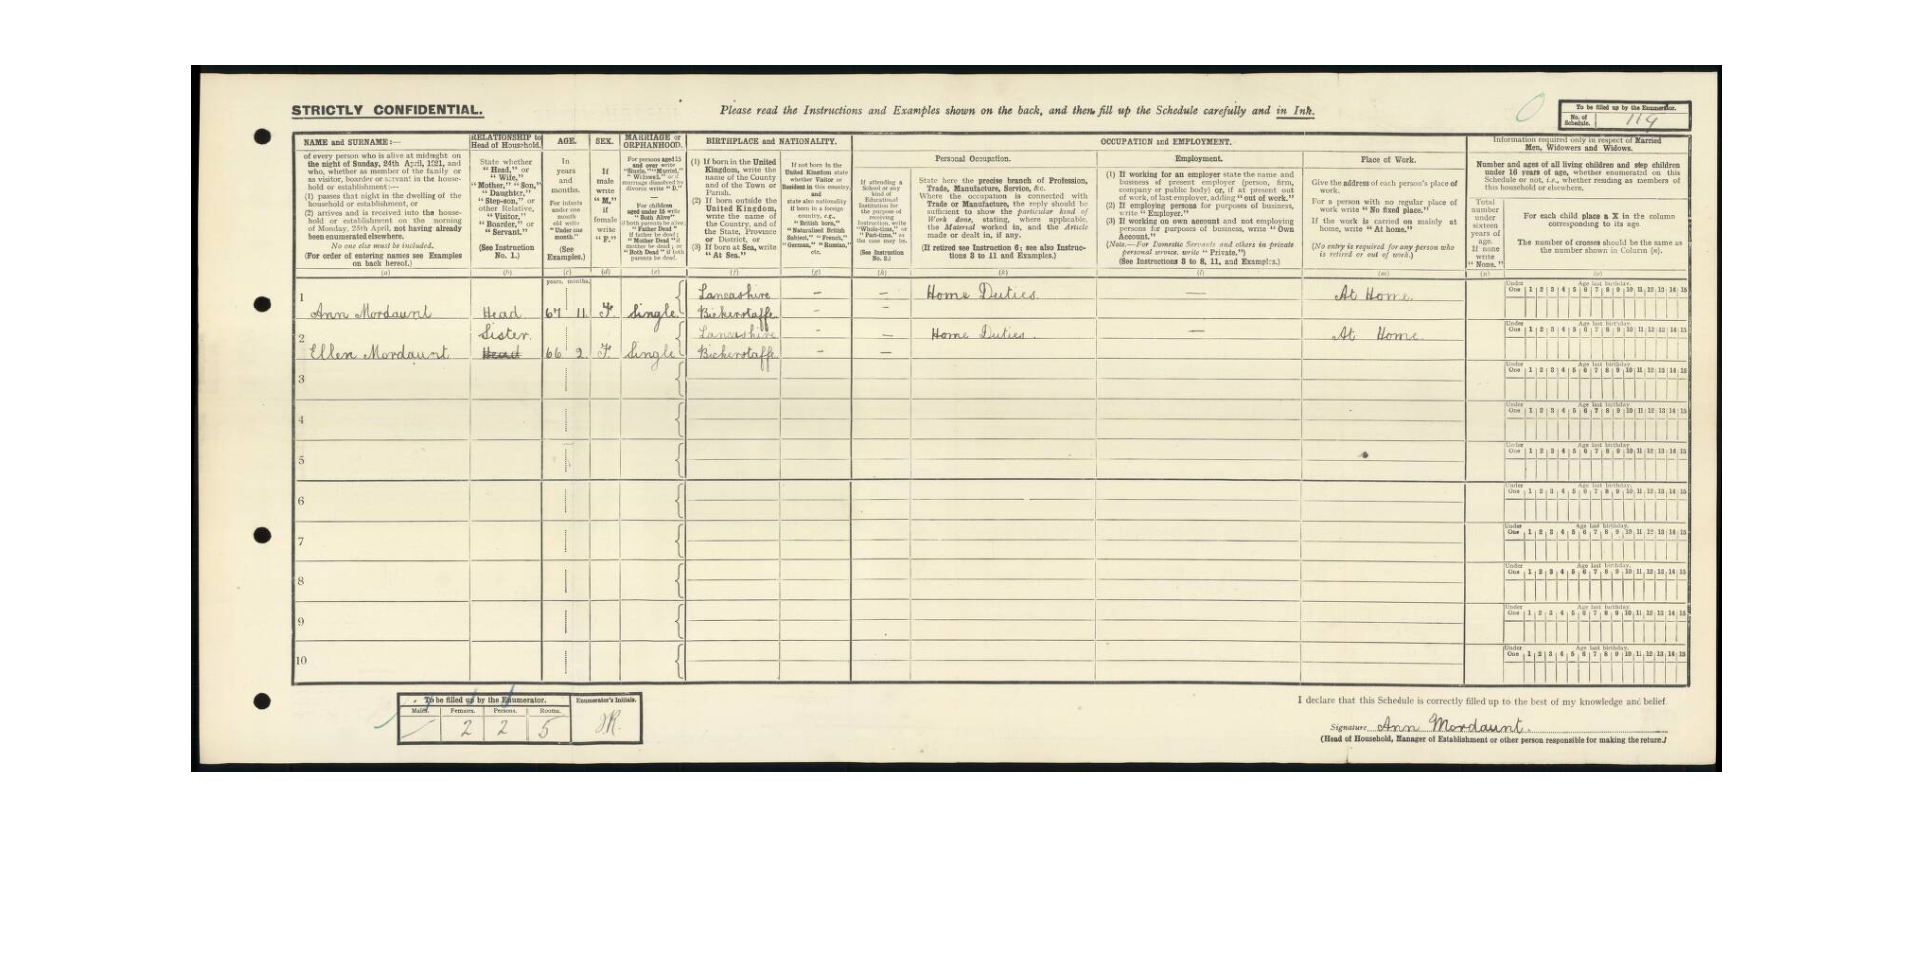 STRICTLY CONFIDENTIAL.
Please read the Instructions and Examples shown on the back, and then fill up the Schedule carefully and in Ink.
To be filled up by the Enumerator.
No. of Schedule. 114
NAME and SURNAME:—
of every person who is alive at midnight on
the night of Sunday, 24th April, 1921, and
who, whether as member of the family or
as visitor, boarder or servant in the house-
hold or establishment:—
(1) passes that night in the dwelling of the
household or establishment, or
(2) arrives and is received into the house-
hold or establishment on the morning
of Monday, 25th April, not having already
been enumerated elsewhere.
No one else must be included.
(For order of entering names see Examples
on back hereof.)
(a)
RELATIONSHIP to
Head of Household.
State whether
"Head," or
"Wife,"
"Mother," "Son,"
"Daughter,"
"Step-son," or
other Relative,
"Visitor,"
"Boarder," or
"Servant."
(See Instruction
No. 1.)
(b)
AGE.
In
years
and
months.
For infants
under one
month
old write
"Under one
month."
(See
Examples.)
(c)
SEX.
If
male
write
"M,"
if
female
write
"F."
(d)
MARRIAGE or
ORPHANHOOD.
For persons aged 15
and over write
"Single," "Married,"
"Widowed," or if
marriage dissolved by
divorce write "D."
For children
aged under 15 write
"Both Alive"
"Father Dead"
"Mother Dead"
"Both Dead"
(e)
BIRTHPLACE and NATIONALITY.
(1) If born in the United
Kingdom, write the
name of the County
and of the Town or
Parish.
(2) If born outside the
United Kingdom,
write the name of
the Country, and of
the State, Province
or District, or
(3) If born at Sea, write
"At Sea."
(f)
If not born in the
United Kingdom state
whether Visitor or
Resident in this country,
and
state also nationality
if born in a foreign
country, e.g.,
"British born,"
"Naturalised British
Subject," "French,"
"German," "Russian,"
etc.
(g)
OCCUPATION and EMPLOYMENT.
If attending a
School or any
kind of
Educational
Institution for
the purpose of
receiving
instruction, write
"Whole-time," or
"Part-time," as
the case may be.
(See Instruction
No. 9.)
(h)
Personal Occupation.
State here the precise branch of Profession,
Trade, Manufacture, Service, &c.
Where the occupation is connected with
Trade or Manufacture, the reply should be
sufficient to show the particular kind of
Work done, stating, where applicable,
the Material worked in, and the Article
made or dealt in, if any.
(If retired see Instruction 6; see also Instruc-
tions 3 to 11 and Examples.)
(k)
Employment.
(1) If working for an employer state the name and
business of present employer (person, firm,
company or public body) or, if at present out
of work, of last employer, adding "out of work."
(2) If employing persons for purposes of business,
write "Employer."
(3) If working on own account and not employing
persons for purposes of business, write "Own
Account."
(Note.—For Domestic Servants and others in private
personal service, write "Private.")
(See Instructions 3 to 8, 11, and Examples.)
(l)
Place of Work.
Give the address of each person's place of
work.
For a person with no regular place of
work write "No fixed place."
If the work is carried on mainly at
home, write "At home."
(No entry is required for any person who
is retired or out of work.)
(m)
Information required only in respect of Married
Men, Widowers and Widows.
Number and ages of all living children and step children
under 16 years of age, whether enumerated on this
Schedule or not, i.e., whether residing as members of
this household or elsewhere.
Total
number
under
sixteen
years of
age.
If none
write
"None."
(n)
For each child place a X in the column
corresponding to its age.
The number of crosses should be the same as
the number shown in Column (n).
(o)
years, months.
Under One 1 2 3 4 5 6 7 8 9 10 11 12 13 14 15
Age last birthday.
1 Ann Mordaunt Head 67 11 F Single Lancashire Bickerstaffe — — Home Duties. — At Home.
2 Ellen Mordaunt Sister Head 66 2 F Single Lancashire Bickerstaffe — — Home Duties. — At Home.
3
4
5
6
7
8
9
10
To be filled up by the Enumerator.
Males. Females. Persons. Rooms.
2 2 5
Enumerator's Initials.
J.R.
I declare that this Schedule is correctly filled up to the best of my knowledge and belief.
Signature Ann Mordaunt.
(Head of Household, Manager of Establishment or other person responsible for making the return.)